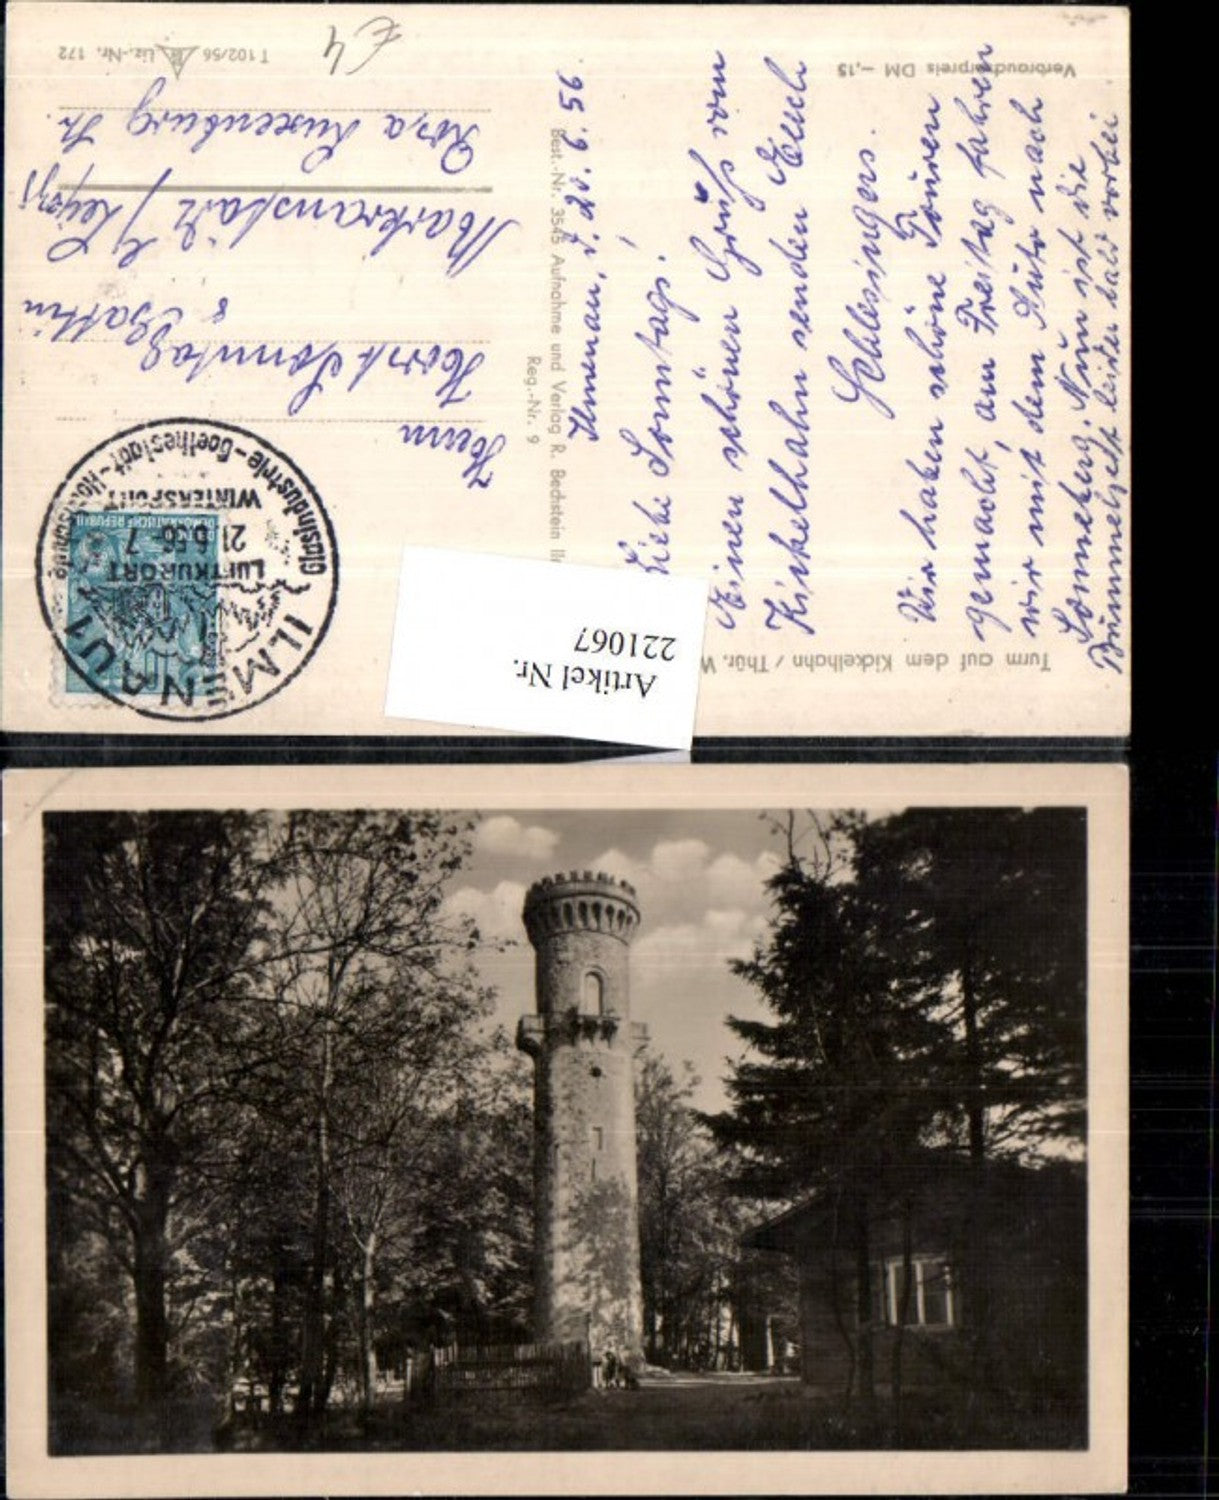 Turm auf dem Kickelhahn / Thür. W
Verbraucherpreis DM -,15
Ilmenau, d. 20.6.56
Liebe Sonntags!
Einen schönen Gruß vom
Kickelhahn senden Euch
Schlesingers.
Wir haben schöne Touren
gemacht, am Freitag fahren
wir mit dem Auto nach
Sonneberg. Nun ist die
Bummelzeit leider bald vorbei
Best.-Nr. 3545 Aufnahme und Verlag R. Bechstein
Reg.-Nr. 9
ILMENAU 1
LUFTKURORT
21.6.56-7
WINTERSPORT
Glasindustrie-Goethestadt-
DEUTSCHE DEMOKRATISCHE REPUBLIK
10
Herrn
Horst Sonntag
& Gattin
Markranstädt / Leipzig
Rosa Luxenburg Str.
T 102/56 Liz.-Nr. 172
£4
Artikel Nr.
221067